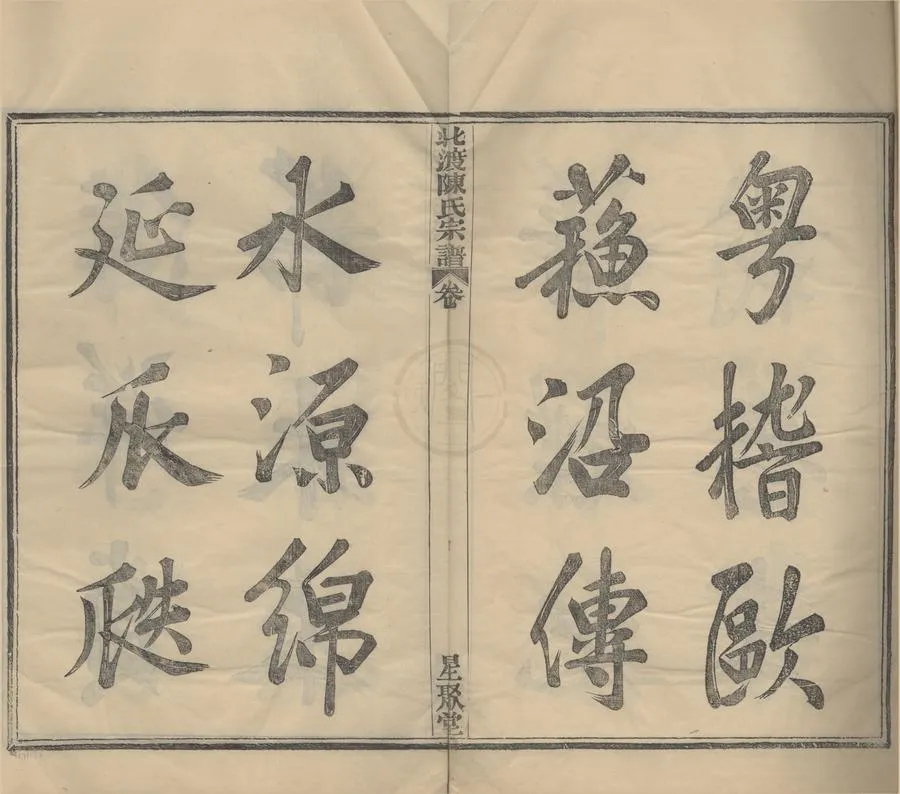 粤稽歐
蘓沿傳
北渡陳氏宗譜
卷
星聚堂
水源綿
延瓜瓞